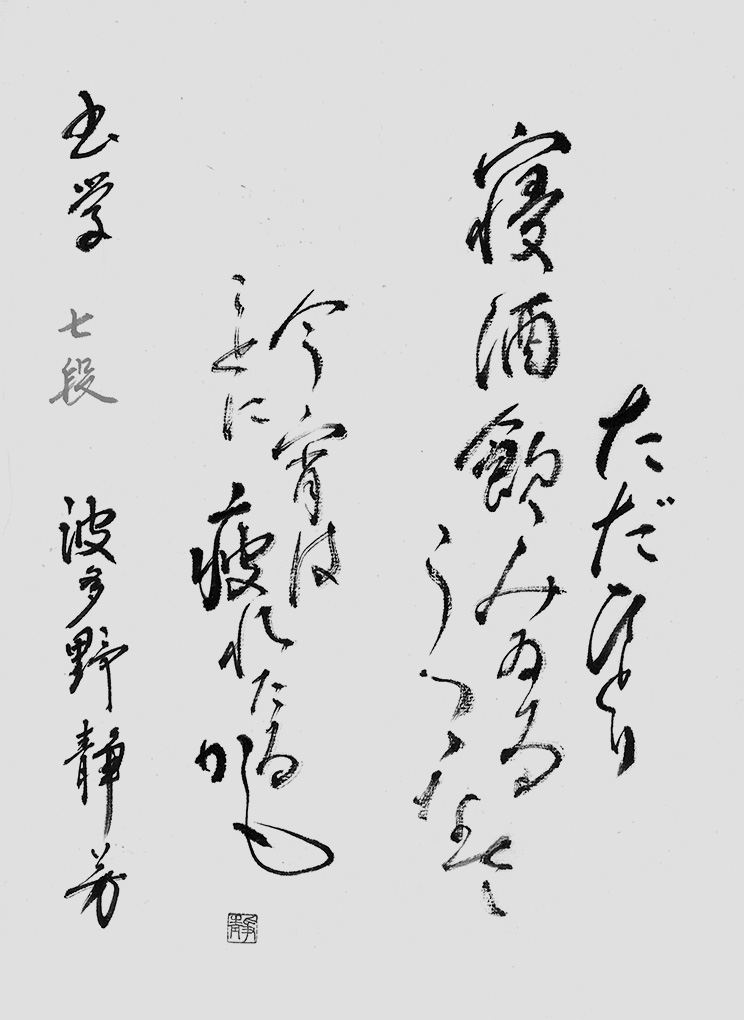 ただひとり
寝酒飲みゐる
今宵は
ことに疲れたるかも
书学 七段 波多野静芳
靜